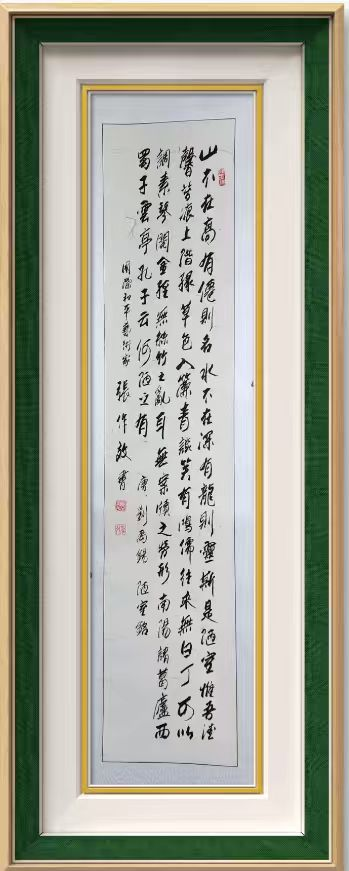 山不在高有僊則名水不在深有龍則靈斯是陋室惟吾德
馨苔痕上階綠草色入簾青談笑有鴻儒往來無白丁可以
調素琴閱金經無絲竹之亂耳無案牘之勞形南陽諸葛廬西
蜀子雲亭孔子云何陋之有 唐 劉禹錫 陋室銘
國際和平藝術家 張作 書